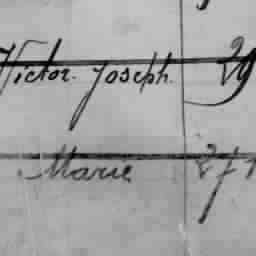 Victor Joseph 29
Marie